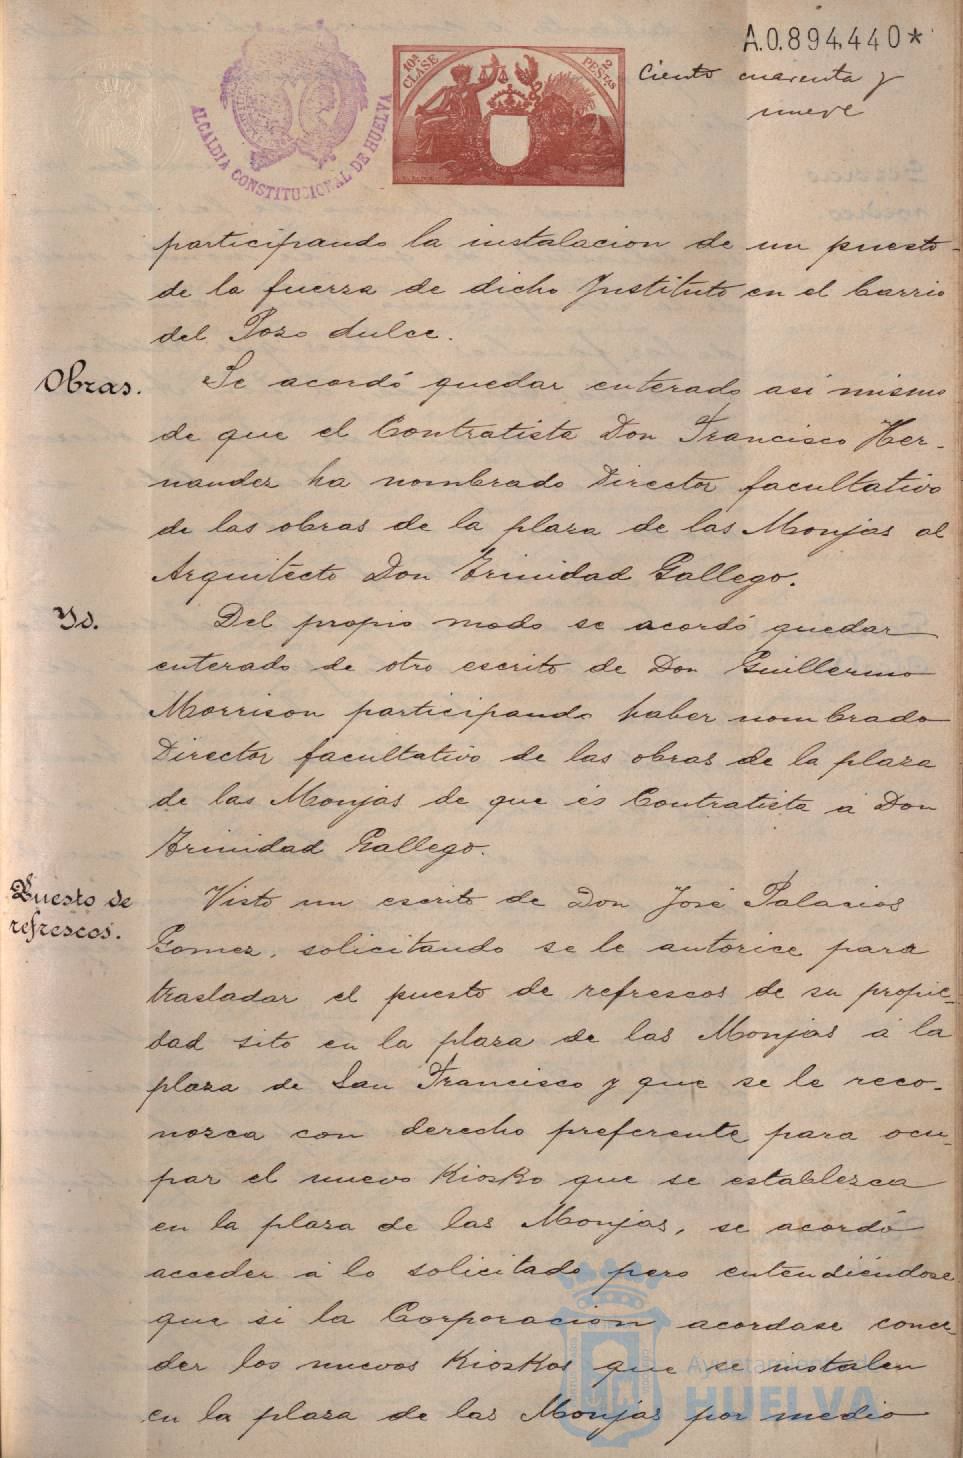 A.0.894,440*
Ciento cuarenta y
nueve
10ª CLASE
2 PESTAS
ALCALDIA CONSTITUCIONAL DE HUELVA
participando la instalacion de un puesto
de la fuerza de dicho Instituto en el barrio
del Pozo dulce.
Obras.
Se acordó quedar enterado asi mismo
de que el Contratista Don Francisco Her-
nandez ha nombrado Director facultativo
de las obras de la plaza de las Monjas al
Arquitecto Don Trinidad Gallego.
Id.
Del propio modo se acordó quedar
enterado de otro escrito de Don Guillermo
Morrison participando haber nombrado
Director facultativo de las obras de la plaza
de las Monjas de que és Contratista á Don
Trinidad Gallego.
Puesto de
refrescos.
Visto un escrito de Don José Palacios
Gomez, solicitando se le autorice para
trasladar el puesto de refrescos de su propie-
dad sito en la plaza de las Monjas á la
plaza de San Francisco y que se le reco-
nozca con derecho preferente para ocu-
par el nuevo Kiosko que se establezca
en la plaza de las Monjas, se acordó
acceder á lo solicitado pero entendiéndose
que si la Corporacion acordase conce-
der los nuevos Kioskos que se instalen
en la plaza de las Monjas por medio
Ayuntamiento de
HUELVA